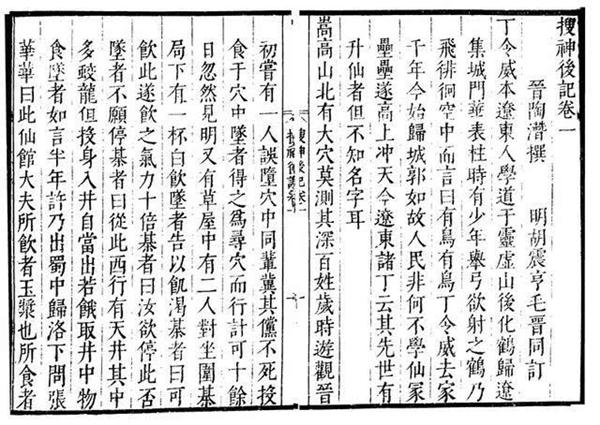 搜神後記卷一
晉陶潛撰　明胡震亨毛晉同訂
丁令威本遼東人學道于靈虛山後化鶴歸遼
集城門華表柱時有少年舉弓欲射之鶴乃
飛徘徊空中而言曰有鳥有鳥丁令威去家
千年今始歸城郭如故人民非何不學仙冢
壘壘遂高上冲天今遼東諸丁云其先世有
升仙者但不知名字耳
嵩高山北有大穴莫測其深百姓歲時遊觀晉
搜神後記卷一
初嘗有一人誤墮穴中同輩冀其儻不死投
食于穴中墜者得之為尋穴而行計可十餘
日忽然見明又有草屋中有二人對坐圍棊
局下有一杯白飲墜者告以飢渴棊者曰可
飲此遂飲之氣力十倍棊者曰汝欲停此否
墜者不願停棊者曰從此西行有天井其中
多蛟龍但投身入井自當出若餓取井中物
食墜者如言半年許乃出蜀中歸洛下問張
華華曰此仙館大夫所飲者玉漿也所食者